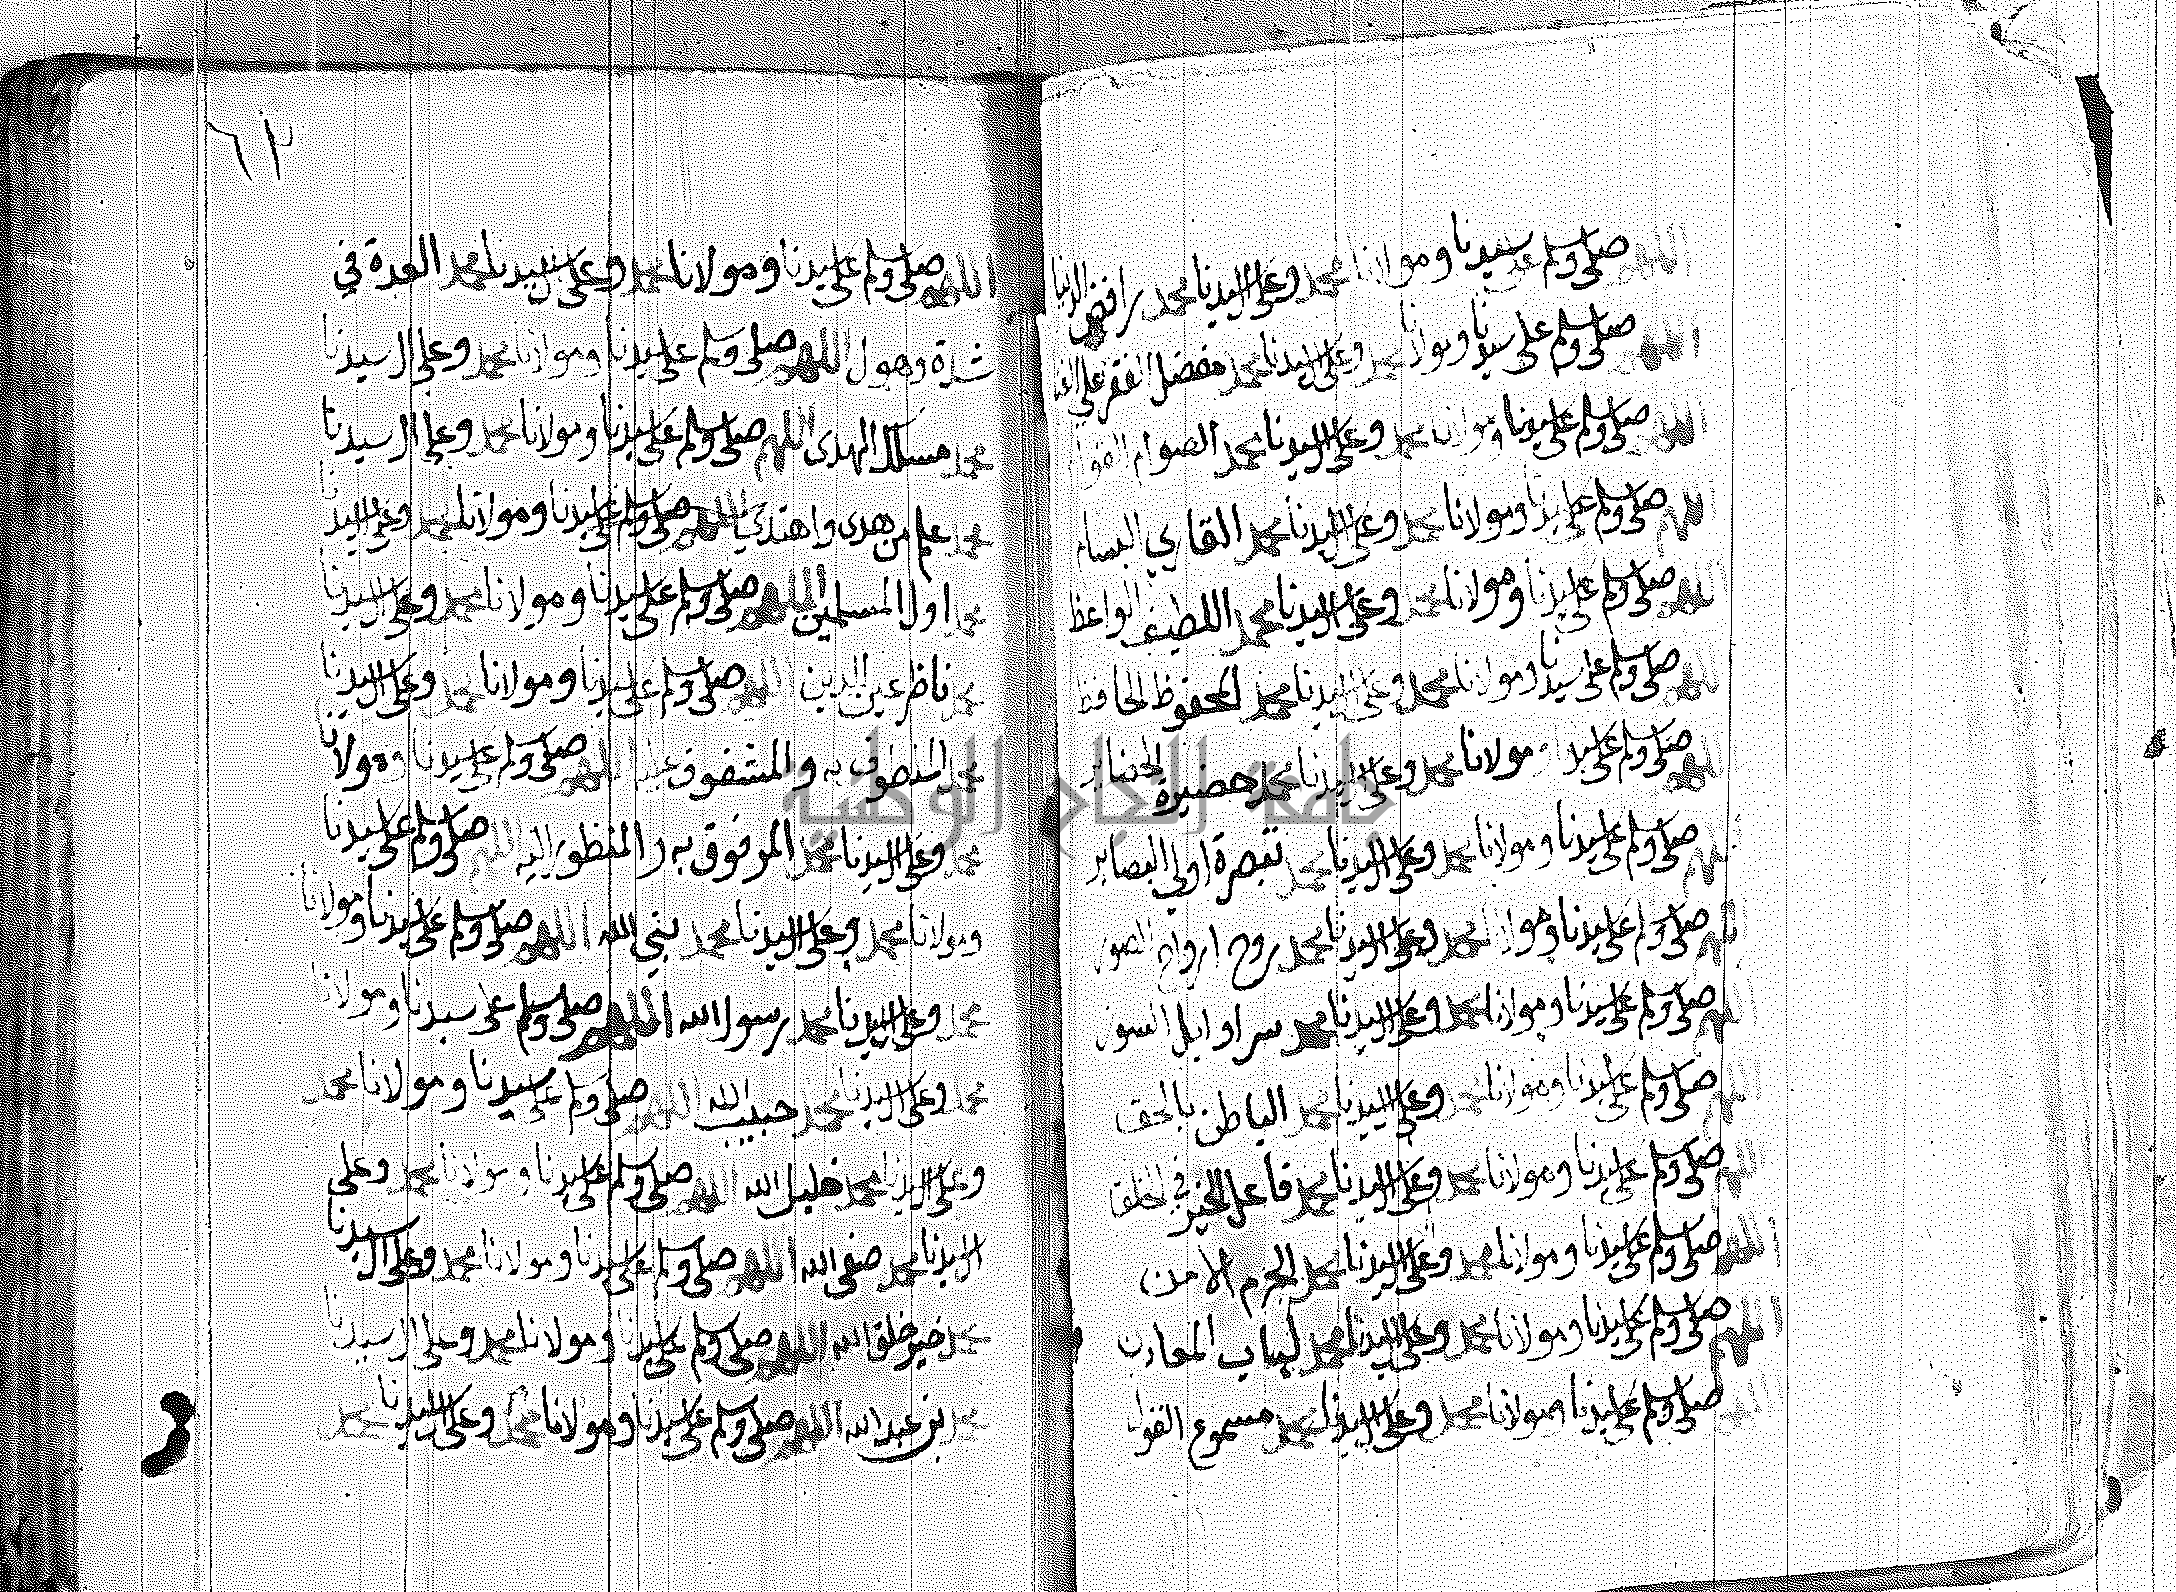 اللهم صل وسلم على سيدنا ومولانا محمد وعلى ال سيدنا محمد رافض الدنيا
اللهم صل وسلم على سيدنا ومولانا محمد وعلى ال سيدنا محمد مفضل الفقر على الغنا
اللهم صل وسلم على سيدنا ومولانا محمد وعلى ال سيدنا محمد الصوام القوام
اللهم صل وسلم على سيدنا ومولانا محمد وعلى ال سيدنا محمد القاري البسام
اللهم صل وسلم على سيدنا ومولانا محمد وعلى ال سيدنا محمد اللطيف الواعظ
اللهم صل وسلم على سيدنا ومولانا محمد وعلى ال سيدنا محمد المحفوظ الحافظ
اللهم صل وسلم على سيدنا ومولانا محمد وعلى ال سيدنا محمد حضيرة الحضاير
اللهم صل وسلم على سيدنا ومولانا محمد وعلى ال سيدنا محمد تبصرة اولي البصاير
اللهم صل وسلم على سيدنا ومولانا محمد وعلى ال سيدنا محمد روح ارواح الصور
اللهم صل وسلم على سيدنا ومولانا محمد وعلى ال سيدنا محمد سر اوايل السور
اللهم صل وسلم على سيدنا ومولانا محمد وعلى ال سيدنا محمد الباطن بالحق
اللهم صل وسلم على سيدنا ومولانا محمد وعلى ال سيدنا محمد فاعل الخير في الخلق
اللهم صل وسلم على سيدنا ومولانا محمد وعلى ال سيدنا محمد الحرم الامن
اللهم صل وسلم على سيدنا ومولانا محمد وعلى ال سيدنا محمد لباب المعادن
اللهم صل وسلم على سيدنا ومولانا محمد وعلى ال سيدنا محمد مسموع القول
٦٢
اللهم صل وسلم على سيدنا ومولانا محمد وعلى ال سيدنا محمد العدة في
شدة وهول اللهم صل وسلم على سيدنا ومولانا محمد وعلى ال سيدنا
محمد مسلك الهدى اللهم صل وسلم على سيدنا ومولانا محمد وعلى ال سيدنا
محمد علم من هدى واهتدي اللهم صل وسلم على سيدنا ومولانا محمد وعلى ال سيدنا
محمد اول المسلمين اللهم صل وسلم على سيدنا ومولانا محمد وعلى ال سيدنا
محمد ناظر عين الدين اللهم صل وسلم على سيدنا ومولانا محمد وعلى ال سيدنا
محمد به والمشفوق اللهم صل وسلم على سيدنا ومولانا
محمد وعلى ال سيدنا محمد المرفوق به والمنظور اليه اللهم صل وسلم على سيدنا
ومولانا محمد وعلى ال سيدنا محمد نبي الله اللهم صل وسلم على سيدنا ومولانا
محمد وعلى ال سيدنا محمد رسول الله اللهم صل وسلم على سيدنا ومولانا
محمد وعلى ال سيدنا محمد حبيب الله اللهم صل وسلم على سيدنا ومولانا محمد
وعلى ال سيدنا محمد خليل الله اللهم صل وسلم على سيدنا ومولانا محمد وعلى
ال سيدنا محمد صفي الله اللهم صل وسلم على سيدنا ومولانا محمد وعلى ال سيدنا
محمد خير خلق الله اللهم صل وسلم على سيدنا ومولانا محمد وعلى ال سيدنا
محمد بن عبد الله اللهم صل وسلم على سيدنا ومولانا محمد وعلى ال سيدنا محمد
جامعة النجاح الوطنية